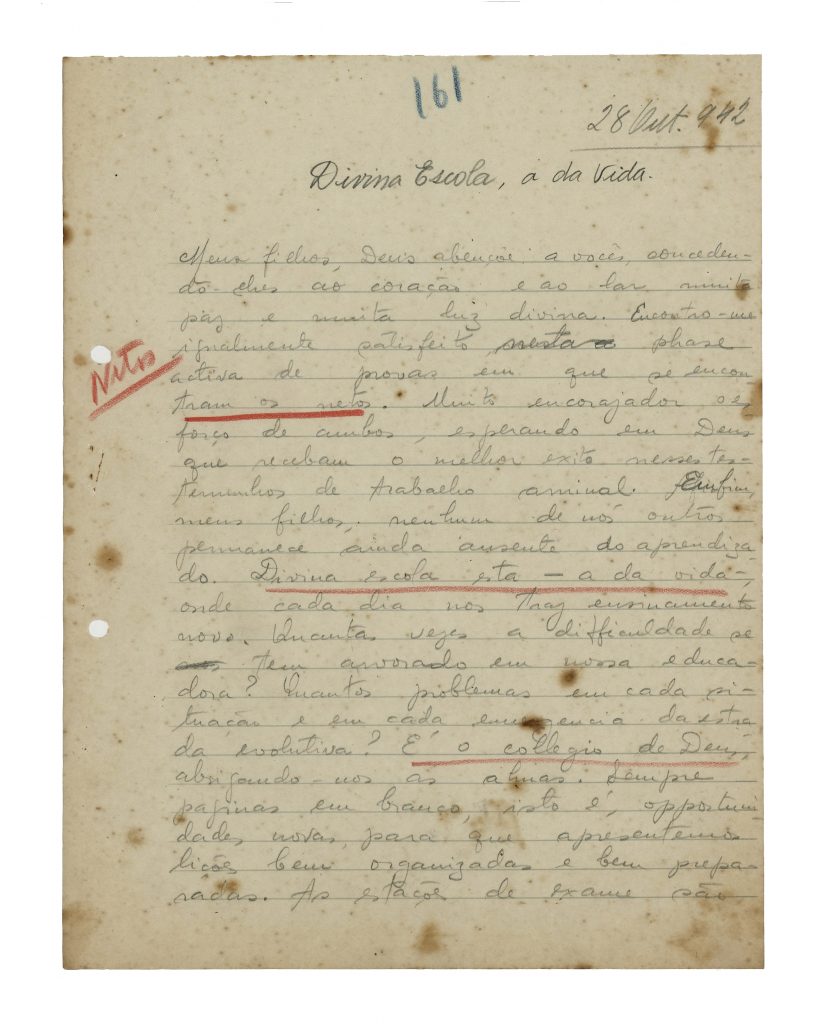 161
28 Out. 942
Divina Escola, a da Vida.
Meus filhos, Deus abençoe a vocês, conceden-
do-lhes ao coração e ao lar, muita
paz e muita luz divina. Encontro-me
igualmente satisfeito nesta phase
Netos
activa de provas em que se encon
tram os netos. Muito encorajador o es
forço de ambos, esperando em Deus
que recebam o melhor exito nesses tes-
temunhos de trabalho annual. Emfim,
meus filhos, nenhum de nós outros
permanece ainda ausente do aprendiza
do. Divina escola esta — a da vida —,
onde cada dia nos traz ensinamento
novo. Quantas vezes a difficuldade se
tem arvorado em nossa educa-
dora? Quantos problemas em cada si-
tuação e em cada emergencia da estra
da evolutiva? É o collegio de Deus,
abrigando-nos as almas. Sempre
paginas em branco, isto é, opportuni
dades novas, para que apresentemos
lições bem organizadas e bem prepa-
radas. As estações de exame são